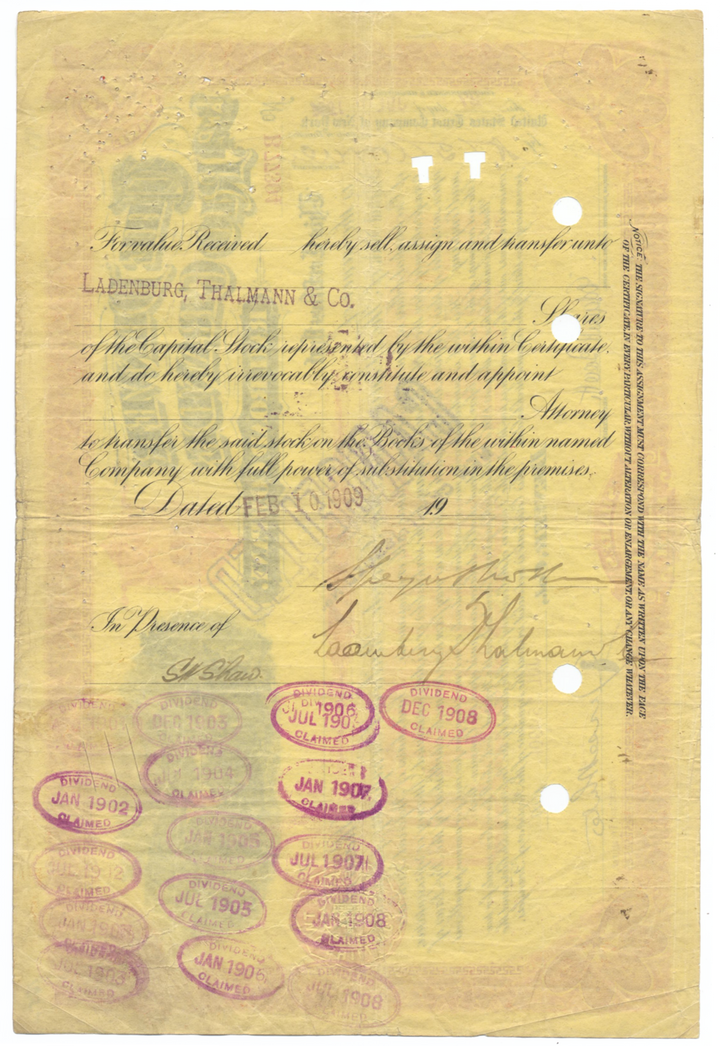 For value Received hereby sell, assign and transfer unto
LADENBURG, THALMANN & CO.
Shares
of the Capital Stock represented by the within Certificate,
and do hereby irrevocably constitute and appoint
Attorney
to transfer the said stock on the Books of the within named
Company with full power of substitution in the premises.
Dated FEB 10 1909 19
Ladenburg Thalmann
In Presence of
S W Shaw.
NOTICE. THE SIGNATURE TO THIS ASSIGNMENT MUST CORRESPOND WITH THE NAME AS WRITTEN UPON THE FACE
OF THE CERTIFICATE, IN EVERY PARTICULAR, WITHOUT ALTERATION OR ENLARGEMENT OR ANY CHANGE WHATEVER.
DIVIDEND
DEC 1903
CLAIMED
DIVIDEND
JUL 190
CLAIMED
DIVIDEND
DEC 1908
CLAIMED
DIVIDEND
1904
CLAIMED
JAN 1907
CLAIMED
DIVIDEND
JAN 1902
CLAIMED
DIVIDEND
JAN 1905
CLAIMED
DIVIDEND
JUL 1907
CLAIMED
DIVIDEND
JUL 1902
CLAIMED
DIVIDEND
JUL 1905
CLAIMED
DIVIDEND
JAN 1908
CLAIMED
DIVIDEND
JAN 1903
CLAIMED
DIVIDEND
JAN 1906
CLAIMED
DIVIDEND
JUL 1903
CLAIMED
DIVIDEND
JUL 1908
CLAIMED